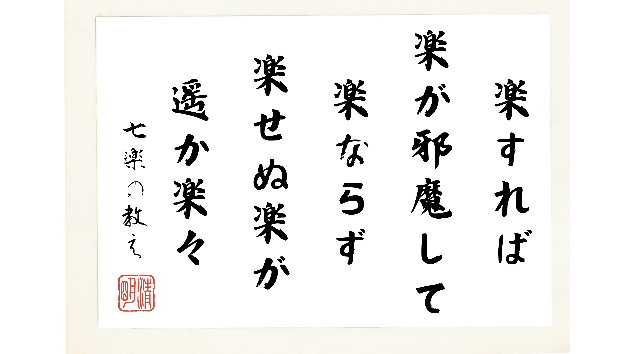 楽すれば
楽が邪魔して
楽ならず
楽せぬ楽が
遥か楽々
七楽の教え
清明